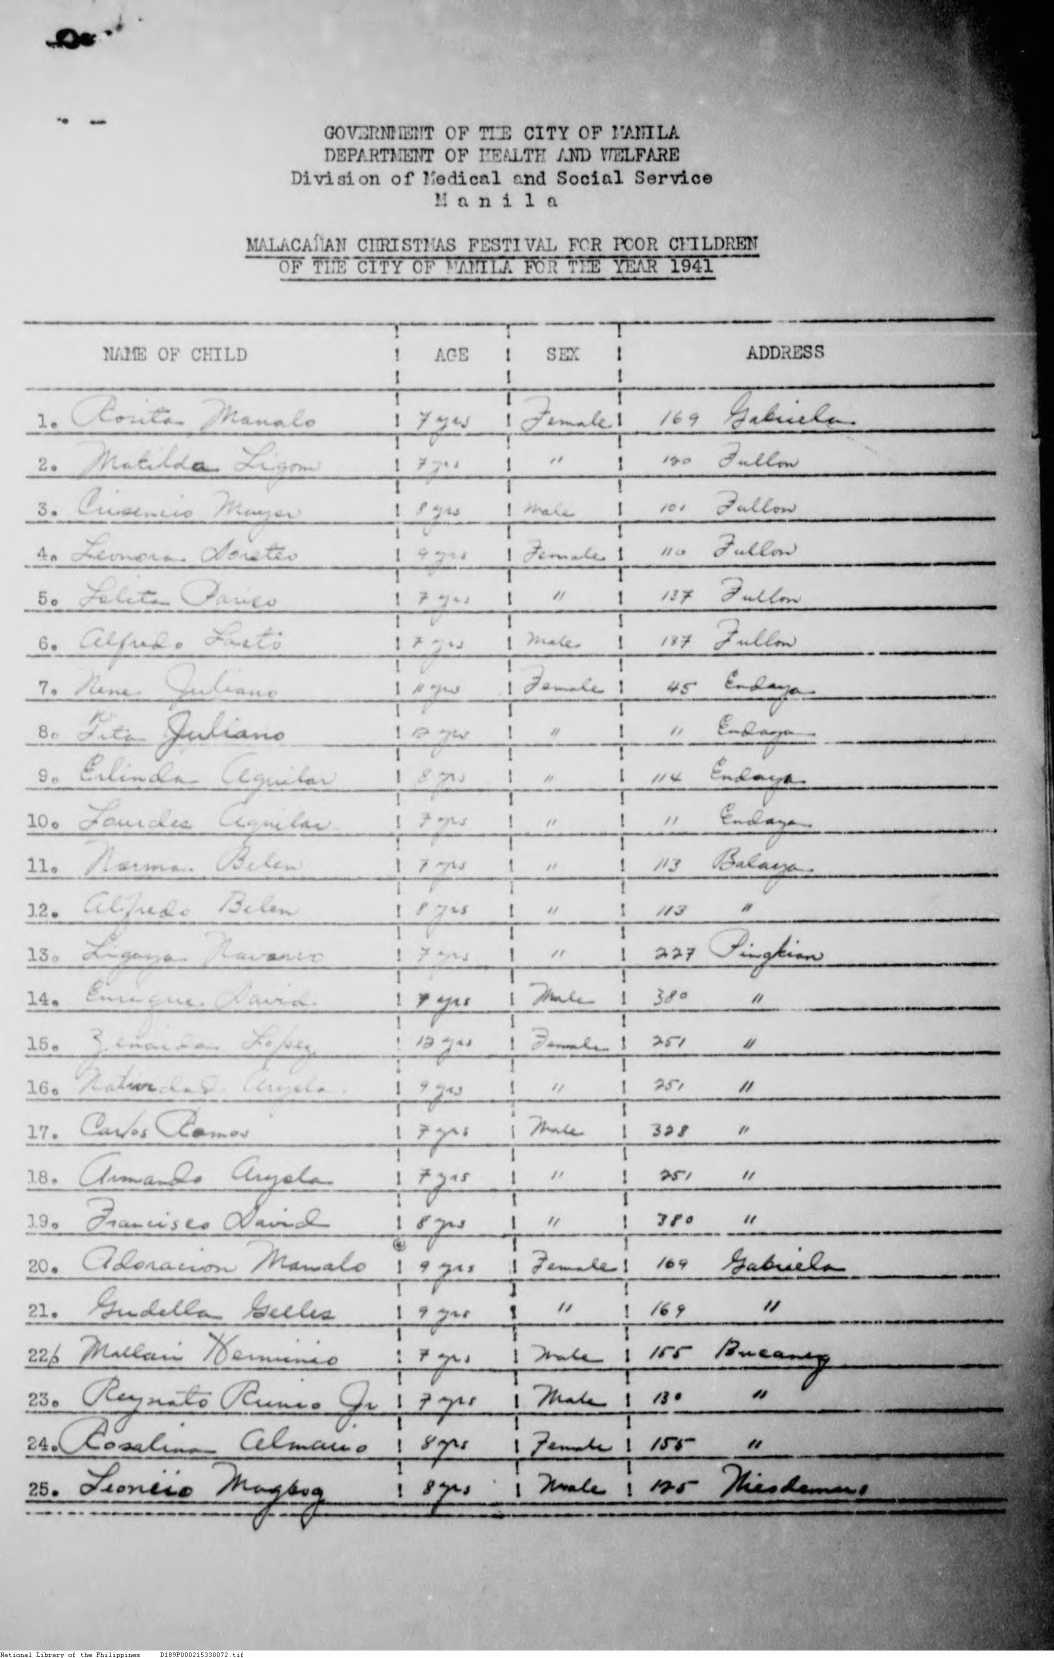 GOVERNMENT OF THE CITY OF MANILA
DEPARTMENT OF HEALTH AND WELFARE
Division of Medical and Social Service
M a n i l a
MALACAÑAN CHRISTMAS FESTIVAL FOR POOR CHILDREN
OF THE CITY OF MANILA FOR THE YEAR 1941
NAME OF CHILD AGE SEX ADDRESS
1. Rosita Manalo 7 yrs Female 169 Gabriela
2. Matilda Ligom 7 yrs " 120 Fullon
3. Crisencio Mayer 8 yrs Male 101 Fullon
4. Leonora 9 yrs Female 110 Fullon
5. Lolita 7 yrs " 137 Fullon
6. Alfredo 7 yrs Male 137 Fullon
7. Nene Juliano 11 yrs Female 45 Endaya
8. Tita Juliano 12 yrs " " Endaya
9. Erlinda Aguilar 8 yrs " 114 Endaya
10. Lourdes Aguilar 7 yrs " " Endaya
11. Norma Belen 7 yrs " 113 Balaya
12. Alfredo Belen 8 yrs " 113 "
13. Ligaya Navarro 7 yrs " 227 Pingkian
14. Enrique David 7 yrs Male 380 "
15. Zenaida Lopez 12 yrs Female 251 "
16. Natividad Argela 9 yrs " 251 "
17. Carlos Ramos 7 yrs Male 328 "
18. Armando Argela 7 yrs " 251 "
19. Francisco David 8 yrs " 380 "
20. Adoracion Manalo 9 yrs Female 169 Gabriela
21. Gudella Gelles 9 yrs " 169 "
22. Mallari Herminio 7 yrs Male 155 Bucaneg
23. Reynato Jr 7 yrs Male 130 "
24. Rosalina Almario 8 yrs Female 155 "
25. Leoncio Magbag 8 yrs Male 125
National Library of the Philippines D189P000215330072.tif